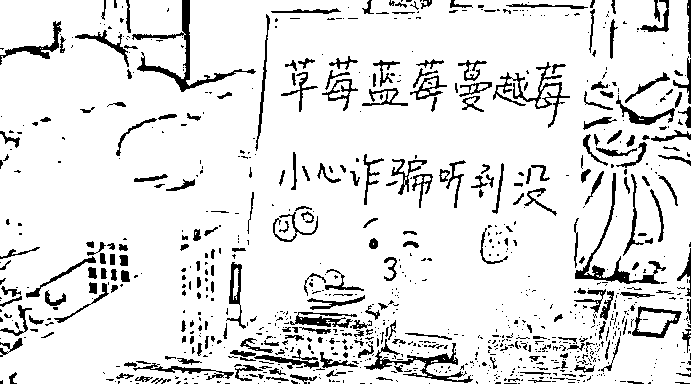 草莓蓝莓蔓越莓
小心诈骗听到没